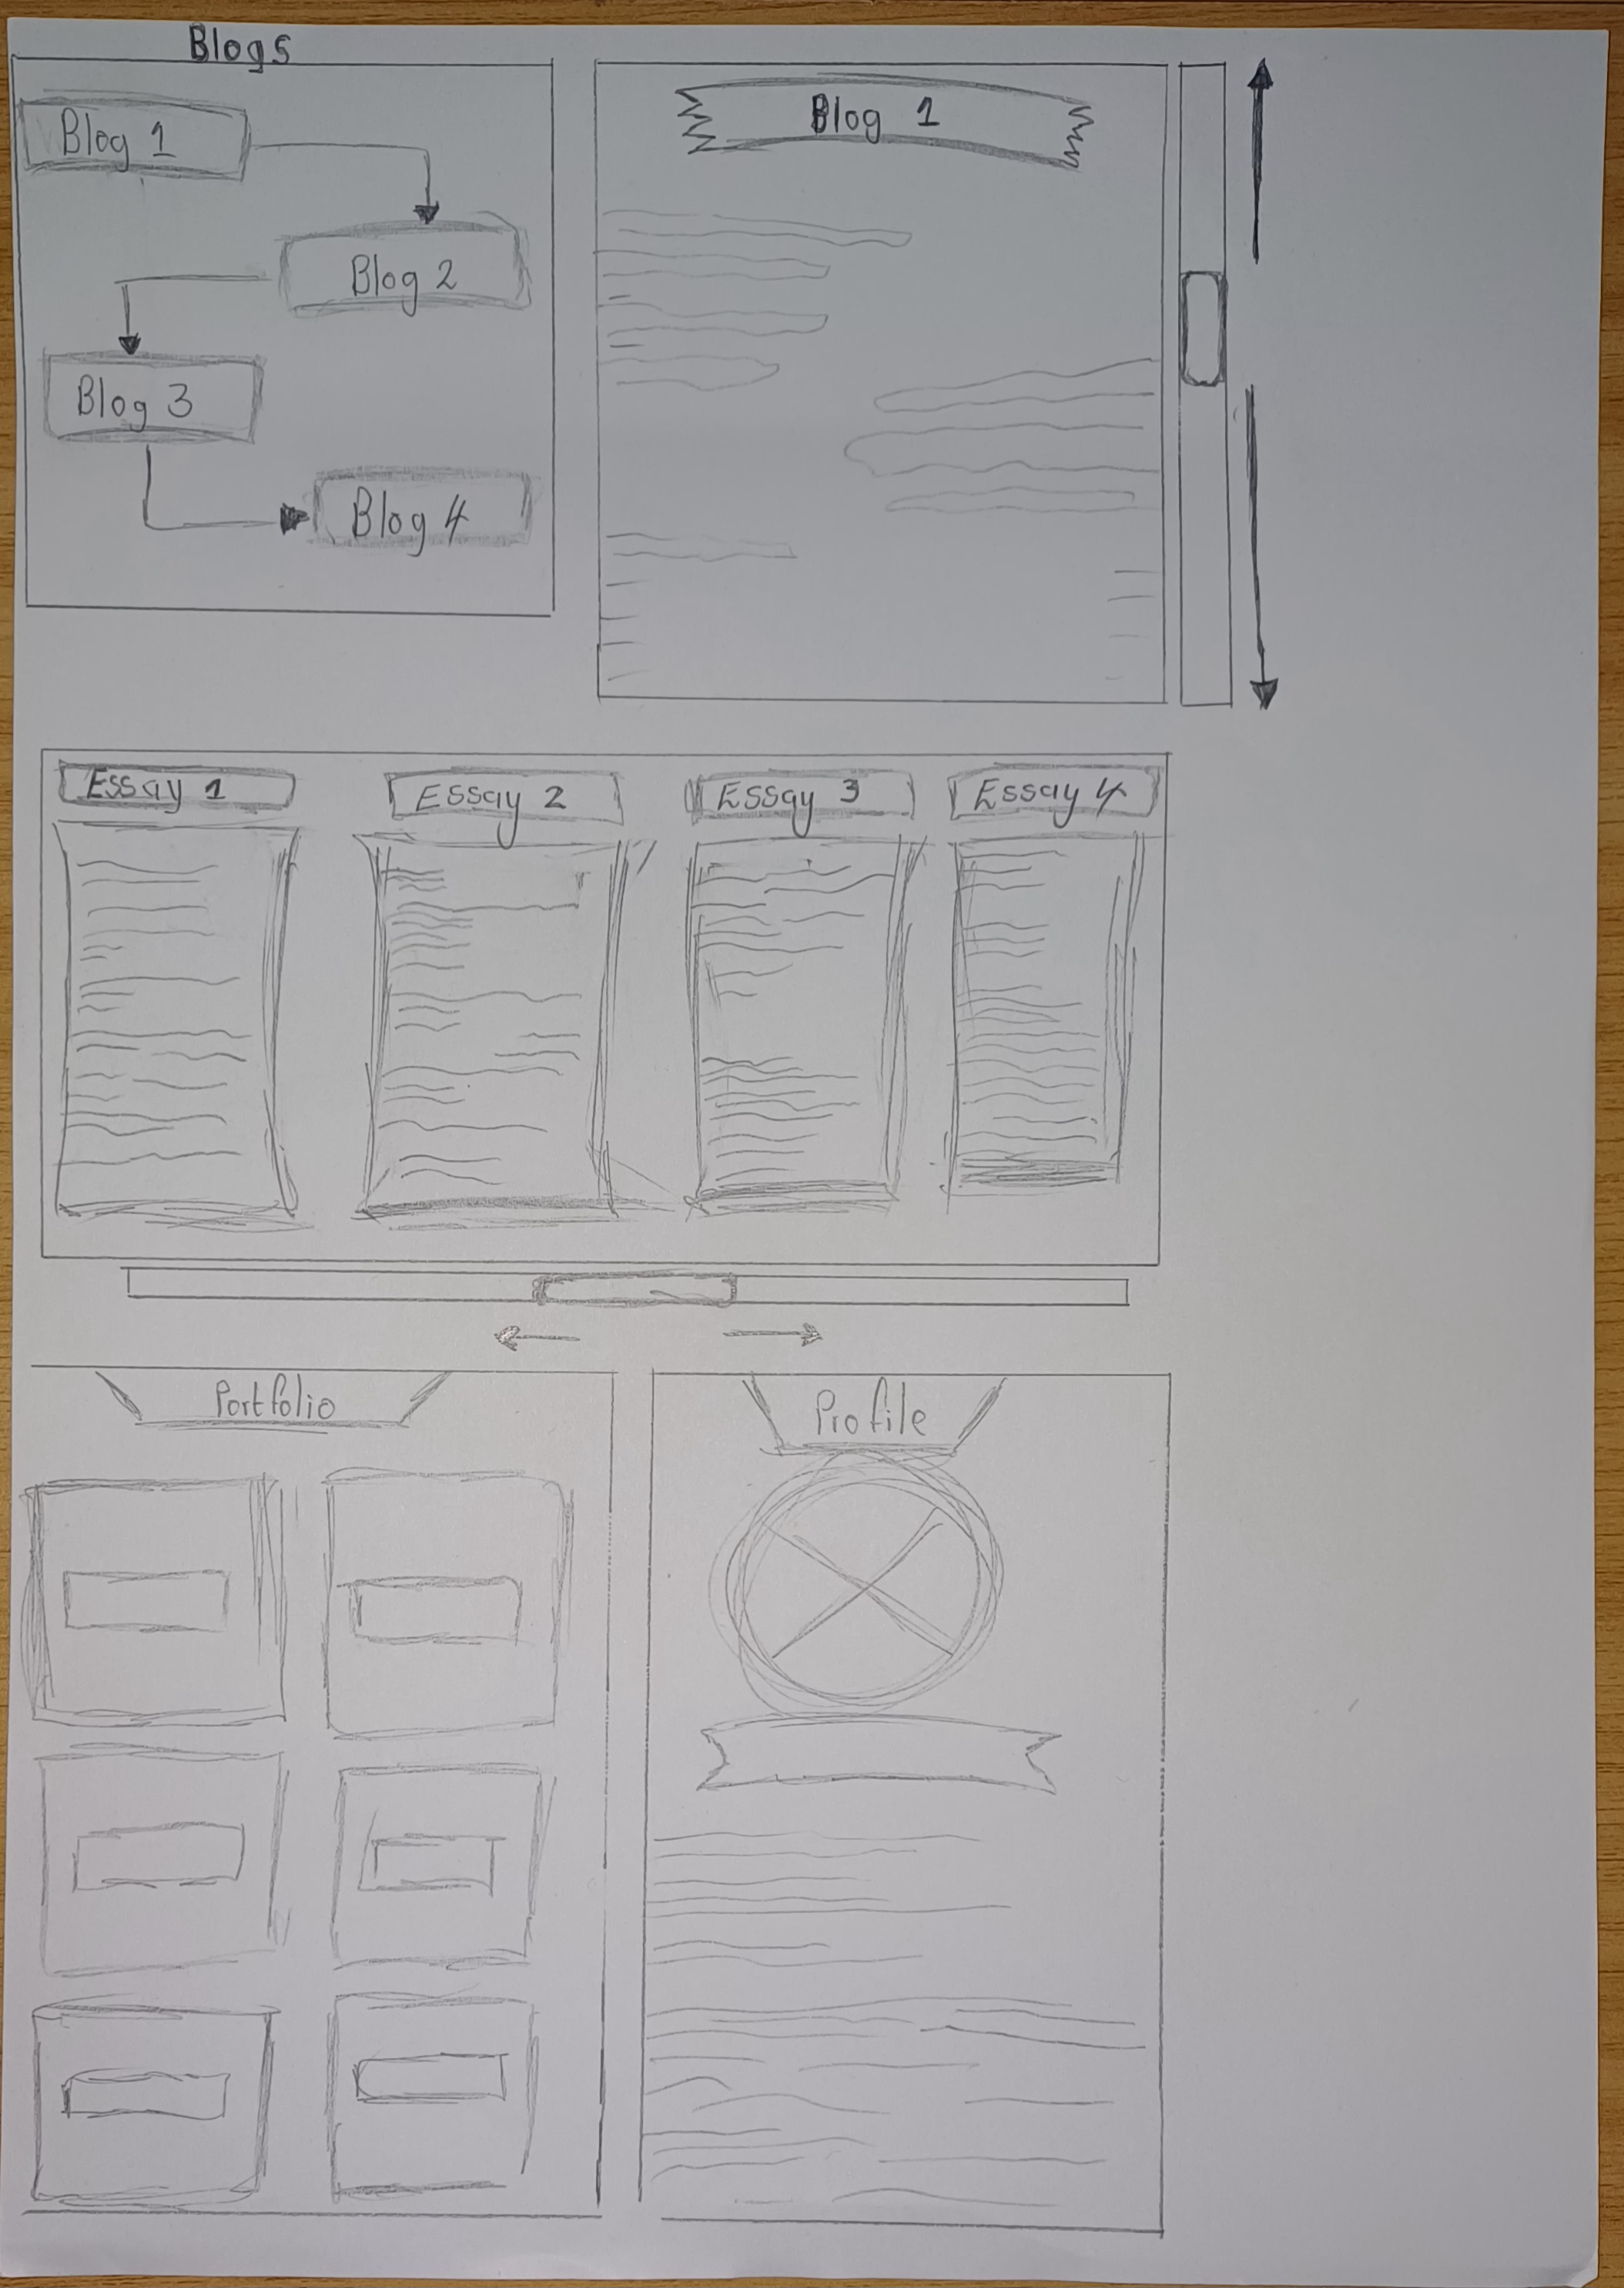 Blogs
Blog 1
Blog 2
Blog 3
Blog 4
Blog 1
Essay 1
Essay 2
Essay 3
Essay 4
Portfolio
Profile